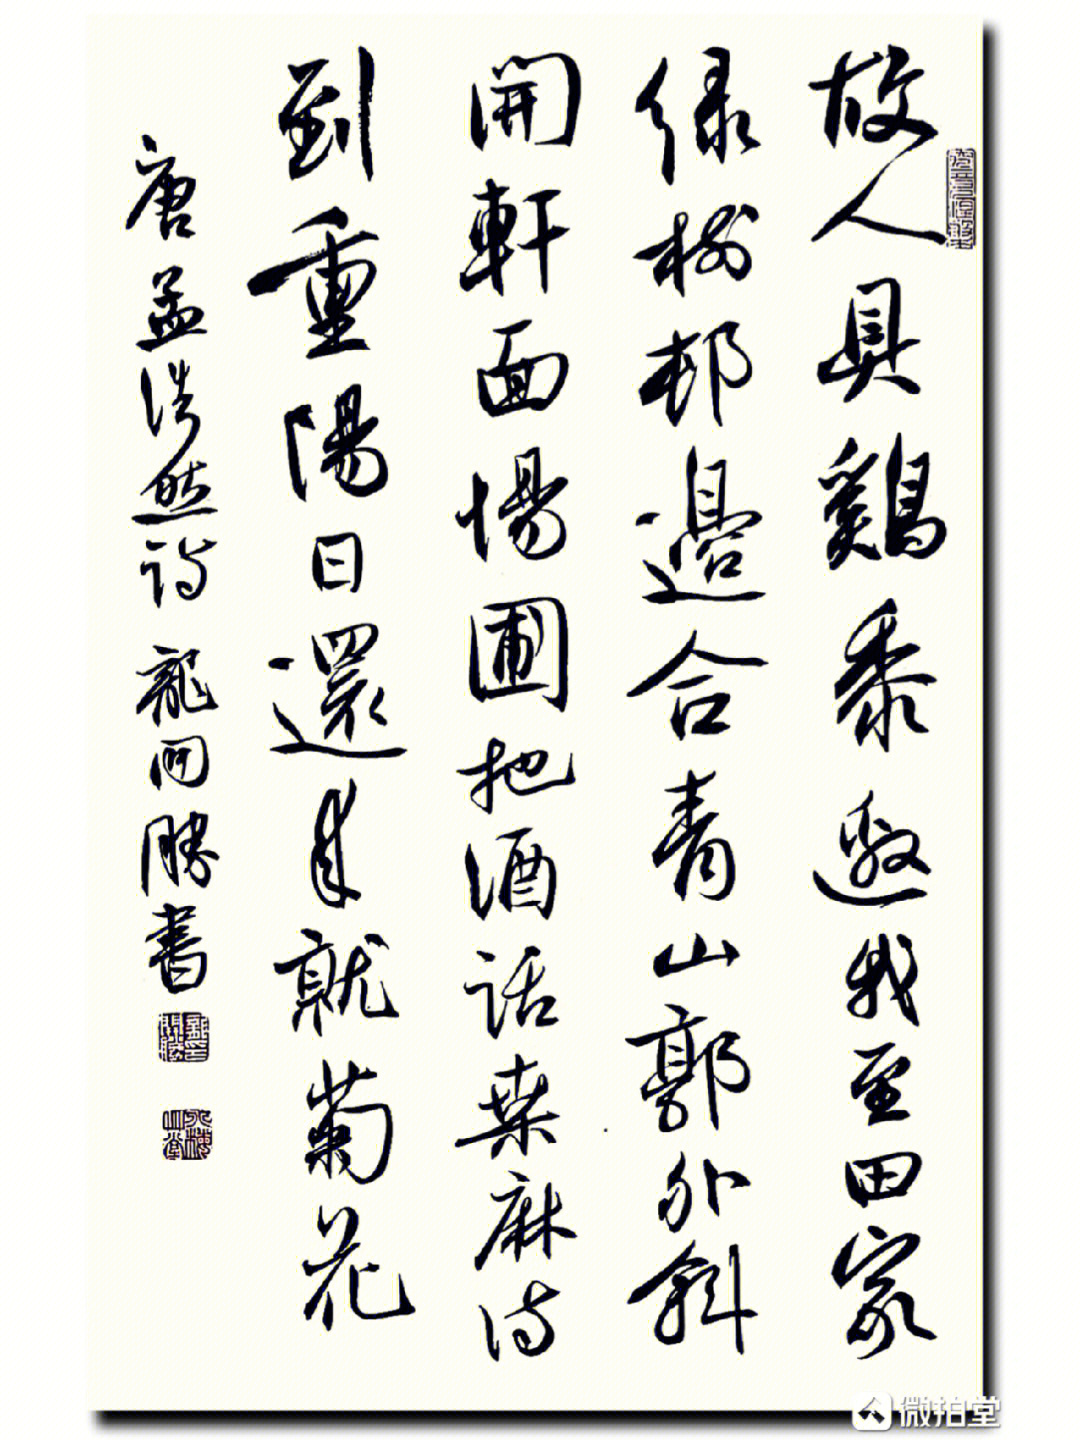 故人具鷄黍邀我至田家
緑樹邨邊合青山郭外斜
開軒面場圃把酒話桑麻待
到重陽日還来就菊花
唐孟浩然詩龍開勝書
微拍堂